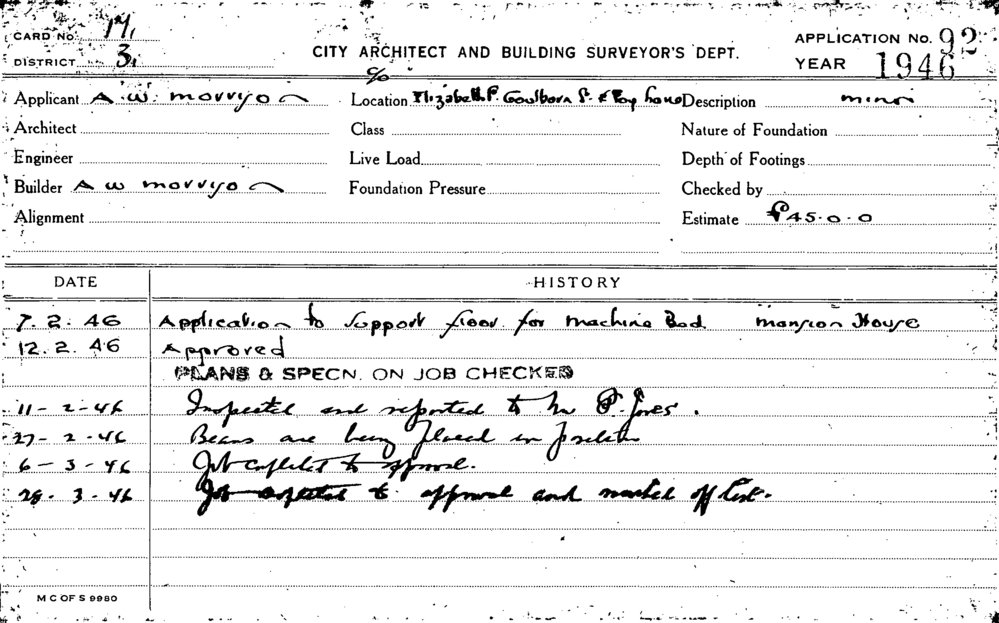 CARD No. 17,
DISTRICT 3,
CITY ARCHITECT AND BUILDING SURVEYOR'S DEPT.
APPLICATION No. 92
YEAR 1946
Applicant A. W. Morrison Location c/o Elizabeth St. Goulburn St. & Bay Lane Description minor
Architect Class Nature of Foundation
Engineer Live Load Depth of Footings
Builder A W Morrison Foundation Pressure Checked by
Alignment Estimate £45.0.0
DATE HISTORY
7. 2. 46 Application to support floor for machine Bed. Mansion House
12. 2. 46 Approved
PLANS & SPECN. ON JOB CHECKED
11 - 2 - 46 Inspected and reported to Mr P. Jones.
27 - 2 - 46 Beams are being placed in position
6 - 3 - 46 Job completed to approval.
28 - 3 - 46 Job completed to approval and marked off list.
M C OF S 9980